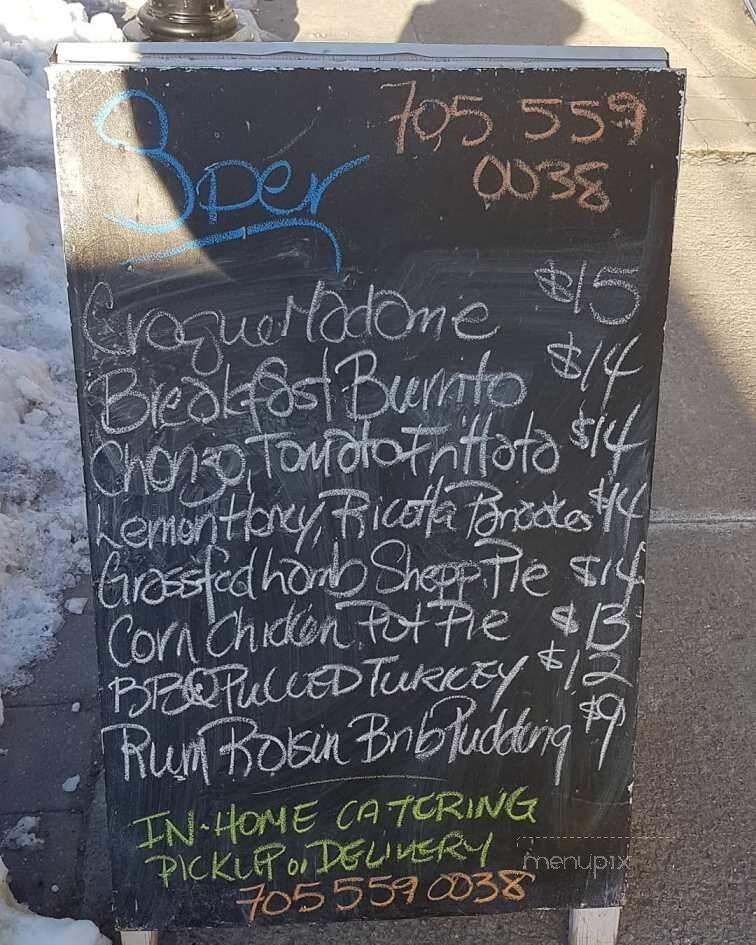 705 559
0038
Croque Madame $15
Breakfast Burrito $14
Chorizo, Tomato Frittata $14
Lemon Honey, Ricotta $14
Grassfed Lamb Shepp. Pie $14
Corn Chicken Pot Pie $13
BBQ PULLED TURKEY $12
Rum Raisin Pudding $9
IN-HOME CATERING
PICKUP or DELIVERY
705 559 0038
menupix